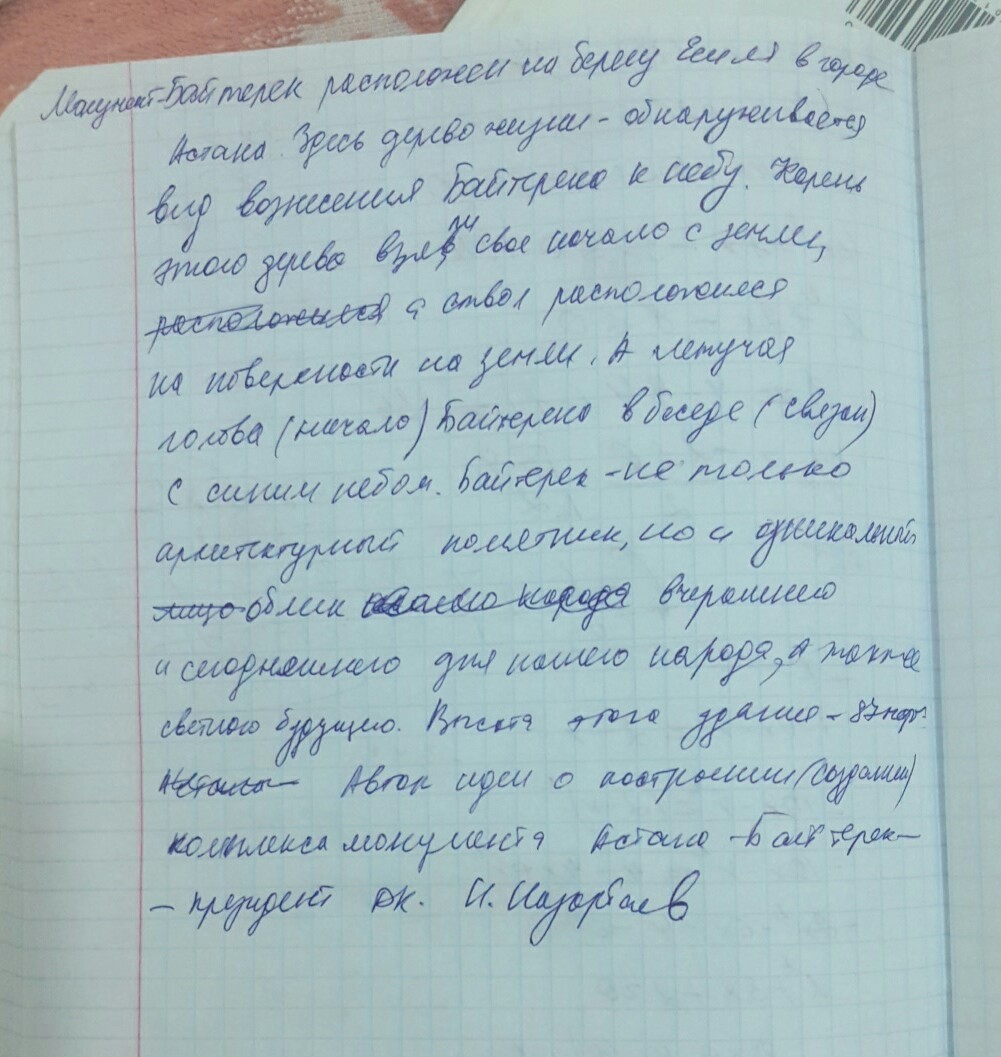 Монумент-Байтерек расположен на берегу Есиля в городе
Астана. Здесь дерево жизни - обнаруживается
вид вознесения Байтерека к небу. Корень
этого дерева взяв свое начало с земли,
расположился а ствол расположился
на поверхности на земли. А летучая
голова (начало) Байтерека в беседе (связи)
с синим небом. Байтерек - не только
архитектурный памятник, но и уникальный
лицо облик нашего народа вчерашнего
и сегодняшнего дня нашего народа, а также
светлого будущего. Высота этого здания - 87
Астана Автор идеи о построении (создании)
комплекса монумента Астана - Байтерек -
- президент РК. Н. Назарбаев